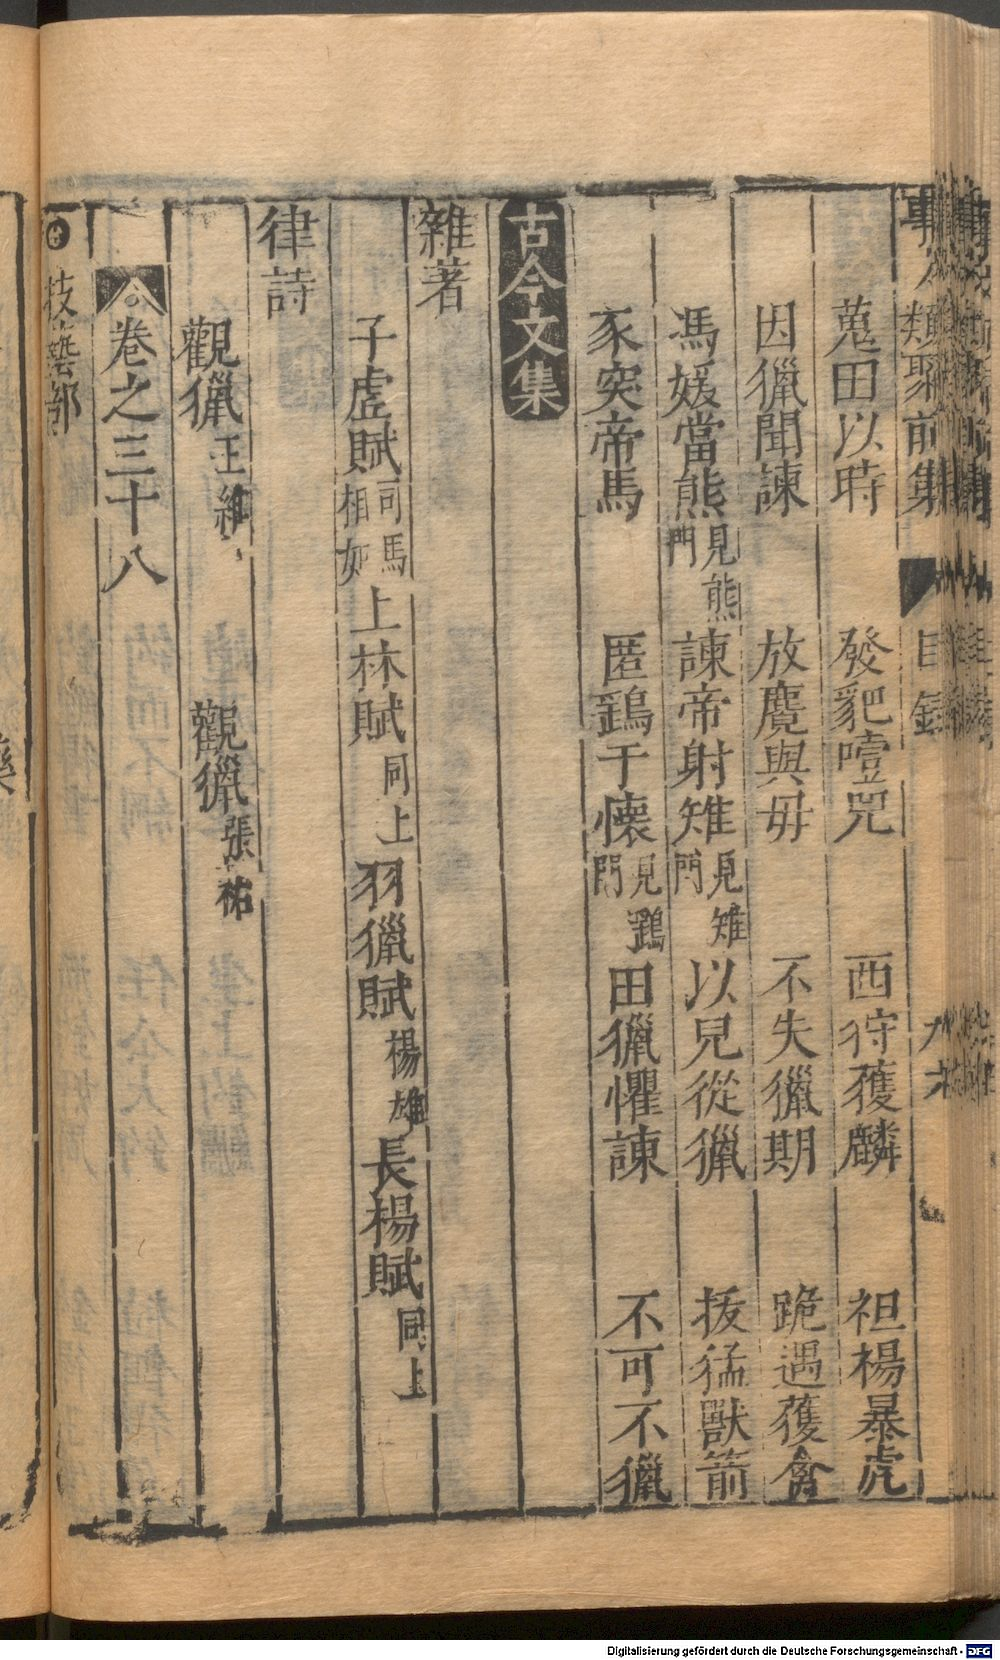 類聚前集 目錄
蒐田以時 發豝噎兕 西狩獲麟 袒裼暴虎
因獵聞諫 放麑與母 不失獵期 詭遇獲禽
馮媛當熊見熊門 諫帝射雉見雉門 以兒從獵 拔猛獸箭
豕突帝馬 匿鷂于懷見鷂門 田獵懼諫 不可不獵
古今文集
雜著
子虛賦司馬相如 上林賦同上 羽獵賦楊雄 長楊賦同上
律詩
觀獵王維 觀獵張祐
卷之三十八
技藝部
Digitalisierung gefördert durch die Deutsche Forschungsgemeinschaft - DFG